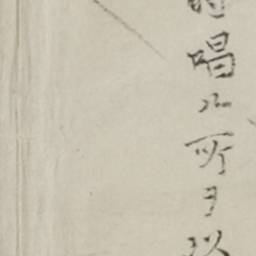 唱ル所ヲ以